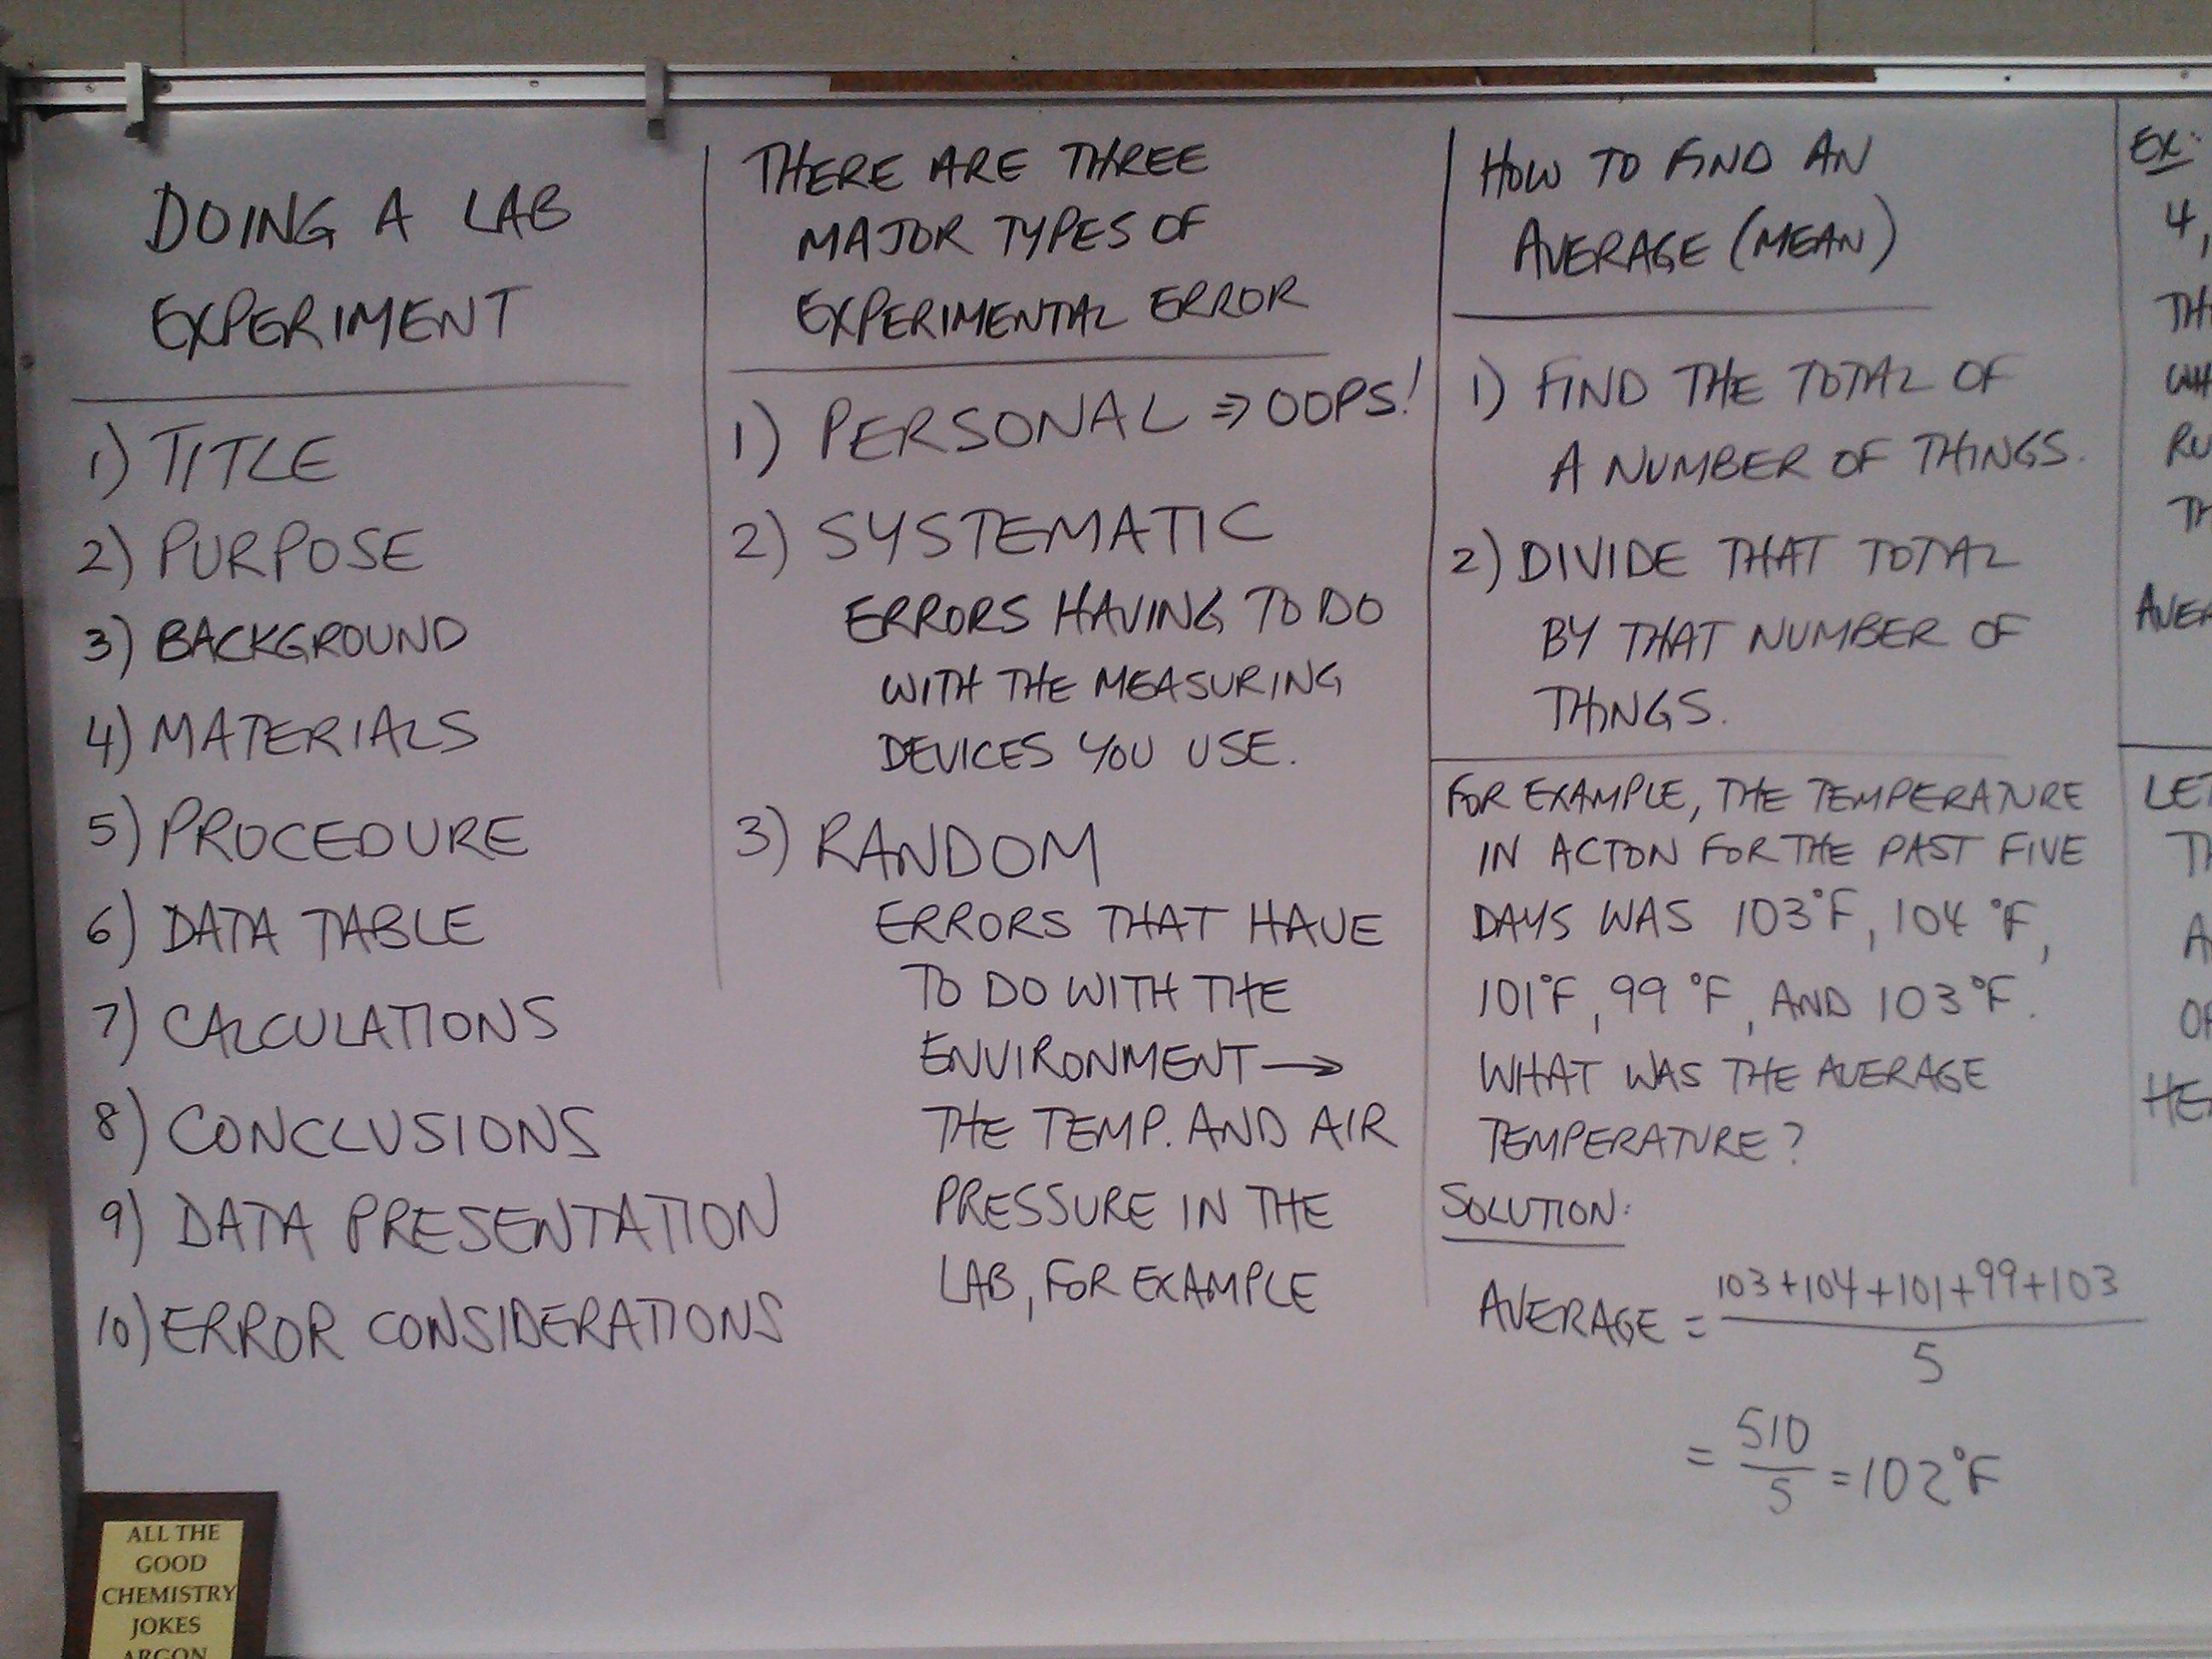 DOING A LAB
EXPERIMENT
1) TITLE
2) PURPOSE
3) BACKGROUND
4) MATERIALS
5) PROCEDURE
6) DATA TABLE
7) CALCULATIONS
8) CONCLUSIONS
9) DATA PRESENTATION
10) ERROR CONSIDERATIONS
THERE ARE THREE
MAJOR TYPES OF
EXPERIMENTAL ERROR
1) PERSONAL ⇒ OOPS!
2) SYSTEMATIC
ERRORS HAVING TO DO
WITH THE MEASURING
DEVICES YOU USE.
3) RANDOM
ERRORS THAT HAVE
TO DO WITH THE
ENVIRONMENT →
THE TEMP. AND AIR
PRESSURE IN THE
LAB, FOR EXAMPLE
HOW TO FIND AN
AVERAGE (MEAN)
1) FIND THE TOTAL OF
A NUMBER OF THINGS.
2) DIVIDE THAT TOTAL
BY THAT NUMBER OF
THINGS.
FOR EXAMPLE, THE TEMPERATURE
IN ACTON FOR THE PAST FIVE
DAYS WAS 103°F, 104°F,
101°F, 99°F, AND 103°F.
WHAT WAS THE AVERAGE
TEMPERATURE?
SOLUTION:
AVERAGE = 103+104+101+99+103
5
= 510
5 = 102°F
EX:
4,
ALL THE
GOOD
CHEMISTRY
JOKES
ARGON